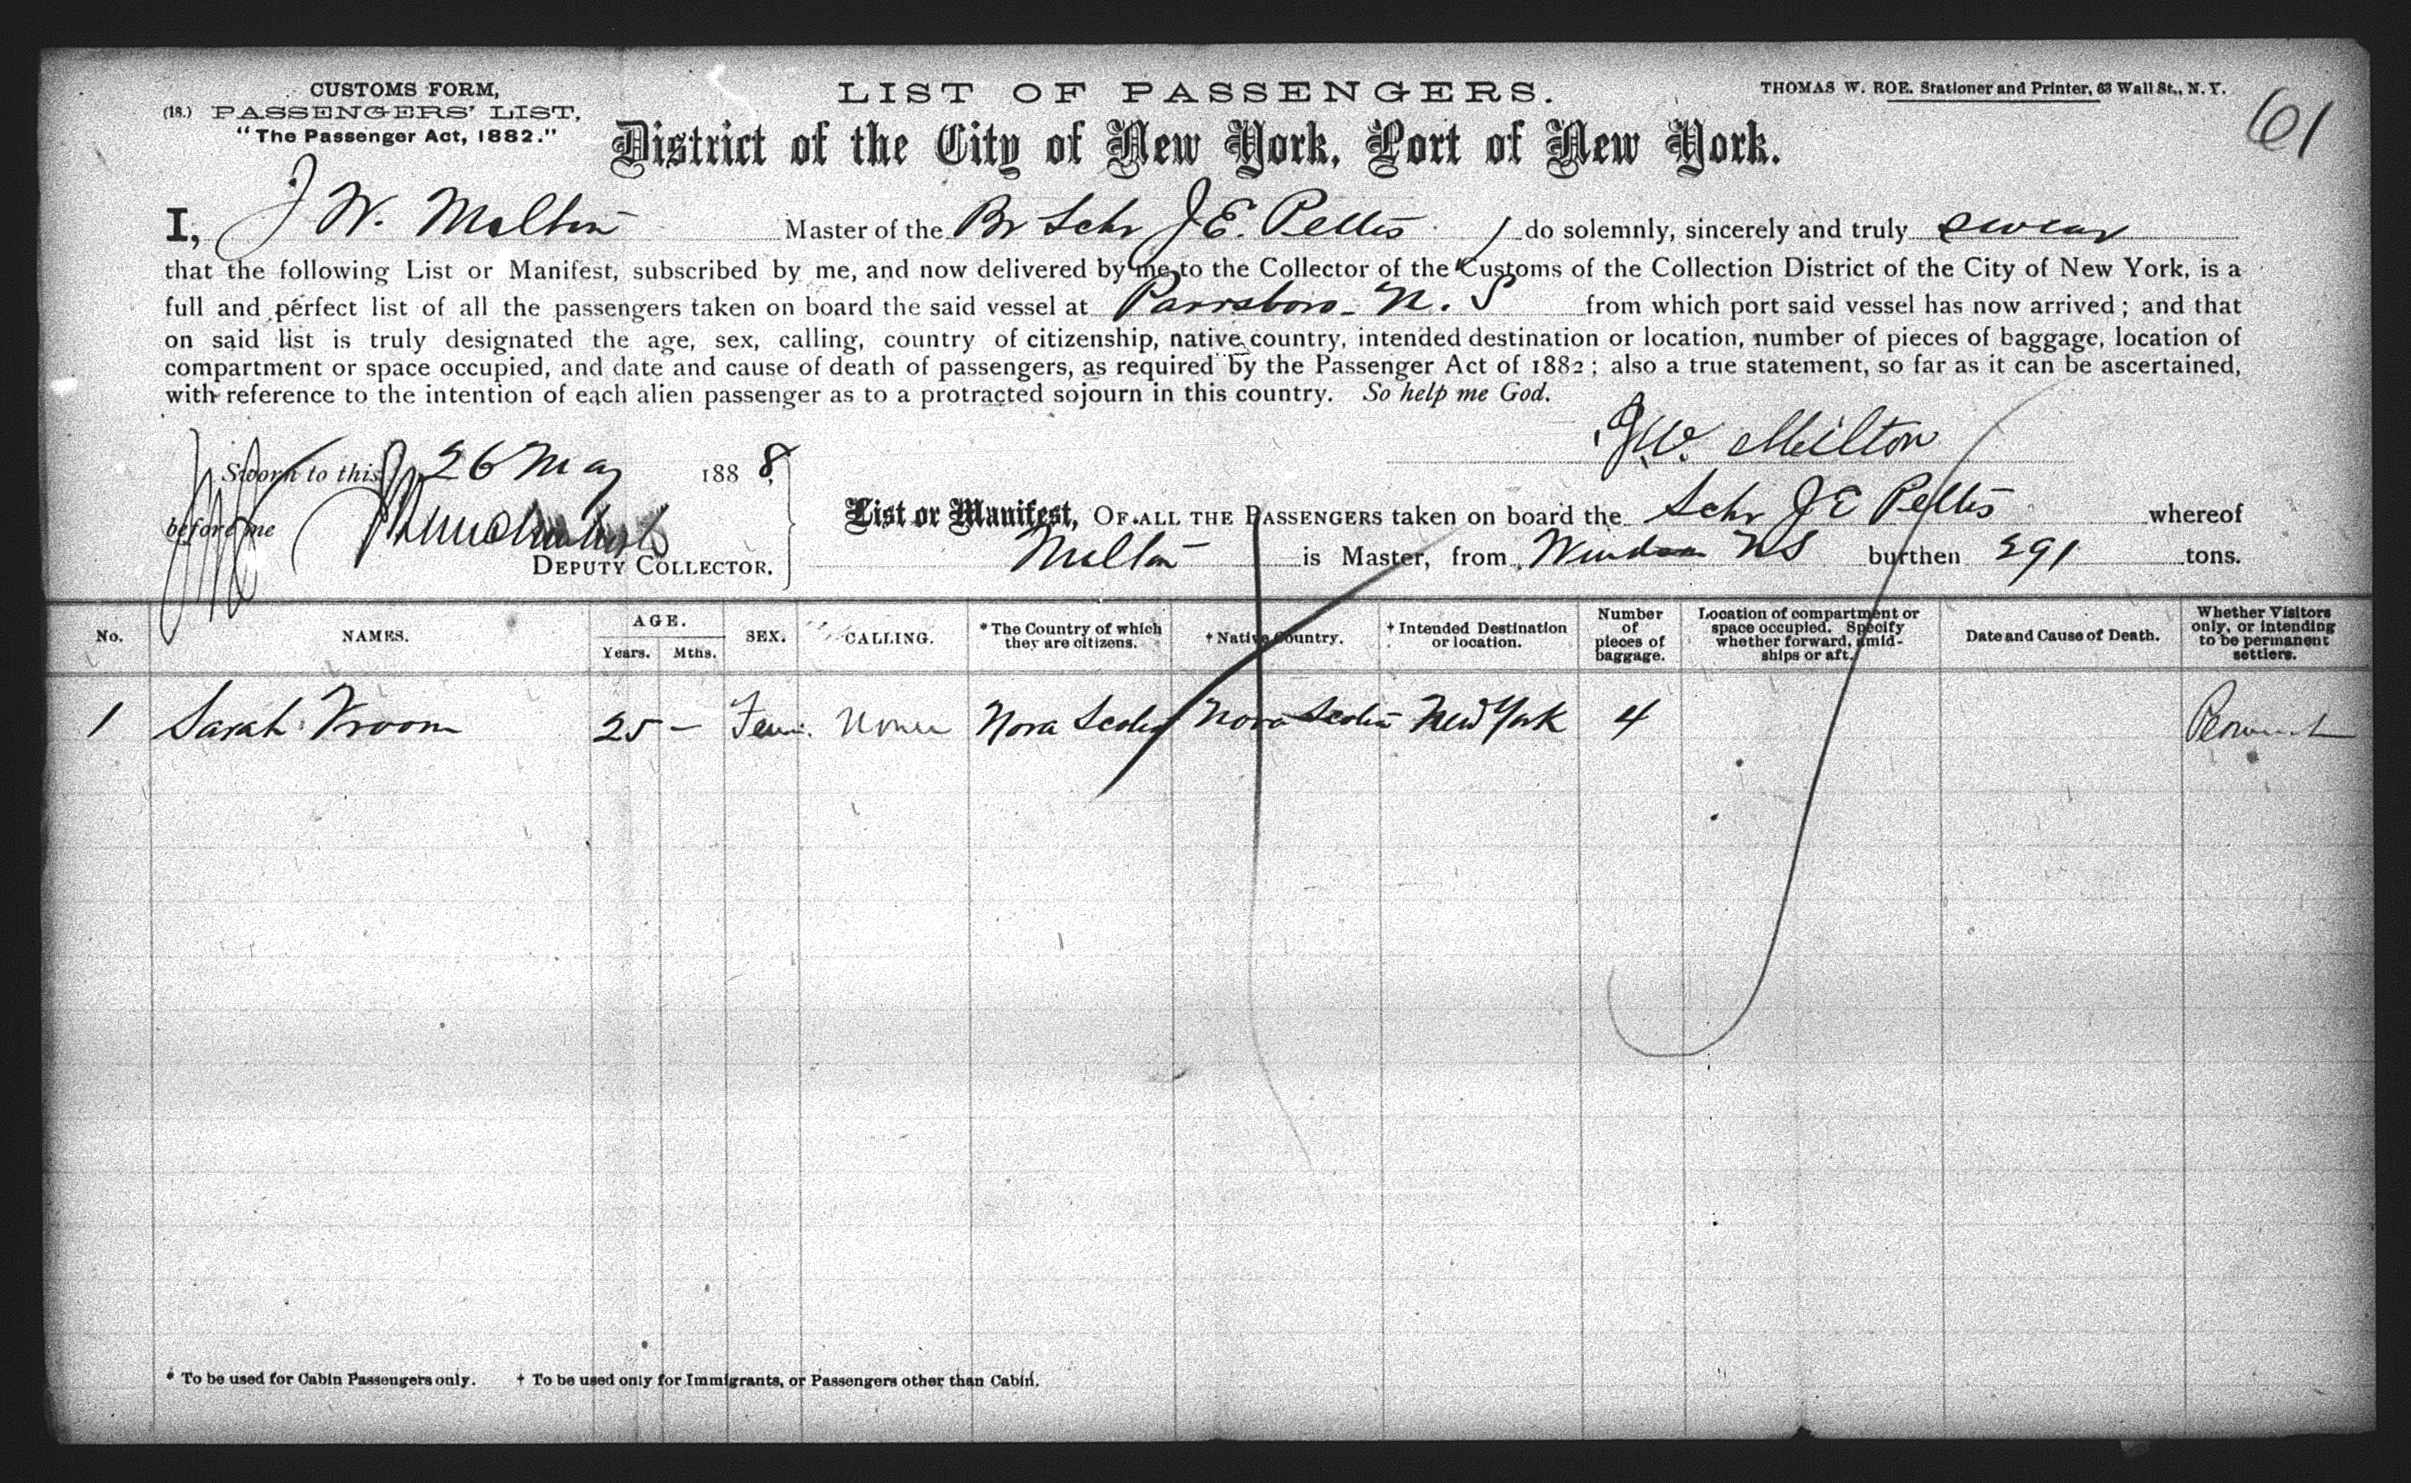 CUSTOMS FORM,
(18.) PASSENGERS' LIST,
"The Passenger Act, 1882."
LIST OF PASSENGERS.
THOMAS W. ROE. Stationer and Printer, 63 Wall St., N. Y.
61
District of the City of New York, Port of New York.
I, J W. Milton Master of the Br Schr J E. Pettis do solemnly, sincerely and truly swear
that the following List or Manifest, subscribed by me, and now delivered by me to the Collector of the Customs of the Collection District of the City of New York, is a
full and perfect list of all the passengers taken on board the said vessel at Parrsboro N. S from which port said vessel has now arrived; and that
on said list is truly designated the age, sex, calling, country of citizenship, native country, intended destination or location, number of pieces of baggage, location of
compartment or space occupied, and date and cause of death of passengers, as required by the Passenger Act of 1882; also a true statement, so far as it can be ascertained,
with reference to the intention of each alien passenger as to a protracted sojourn in this country. So help me God.
J.W. Milton
Sworn to this 26 May 1888
before me
DEPUTY COLLECTOR.
List or Manifest, OF ALL THE PASSENGERS taken on board the Schr J E Pettis whereof
Milton is Master, from Windsor NS burthen 291 tons.
No. NAMES. AGE. Years. Mths. SEX. CALLING. * The Country of which they are citizens. † Native Country. † Intended Destination or location. Number of pieces of baggage. Location of compartment or space occupied. Specify whether forward, amidships or aft. Date and Cause of Death. Whether Visitors only, or intending to be permanent settlers.
1 Sarah Vroom 25 — Fem. None Nova Scotia Nova Scotia New York 4
* To be used for Cabin Passengers only. † To be used only for Immigrants, or Passengers other than Cabin.